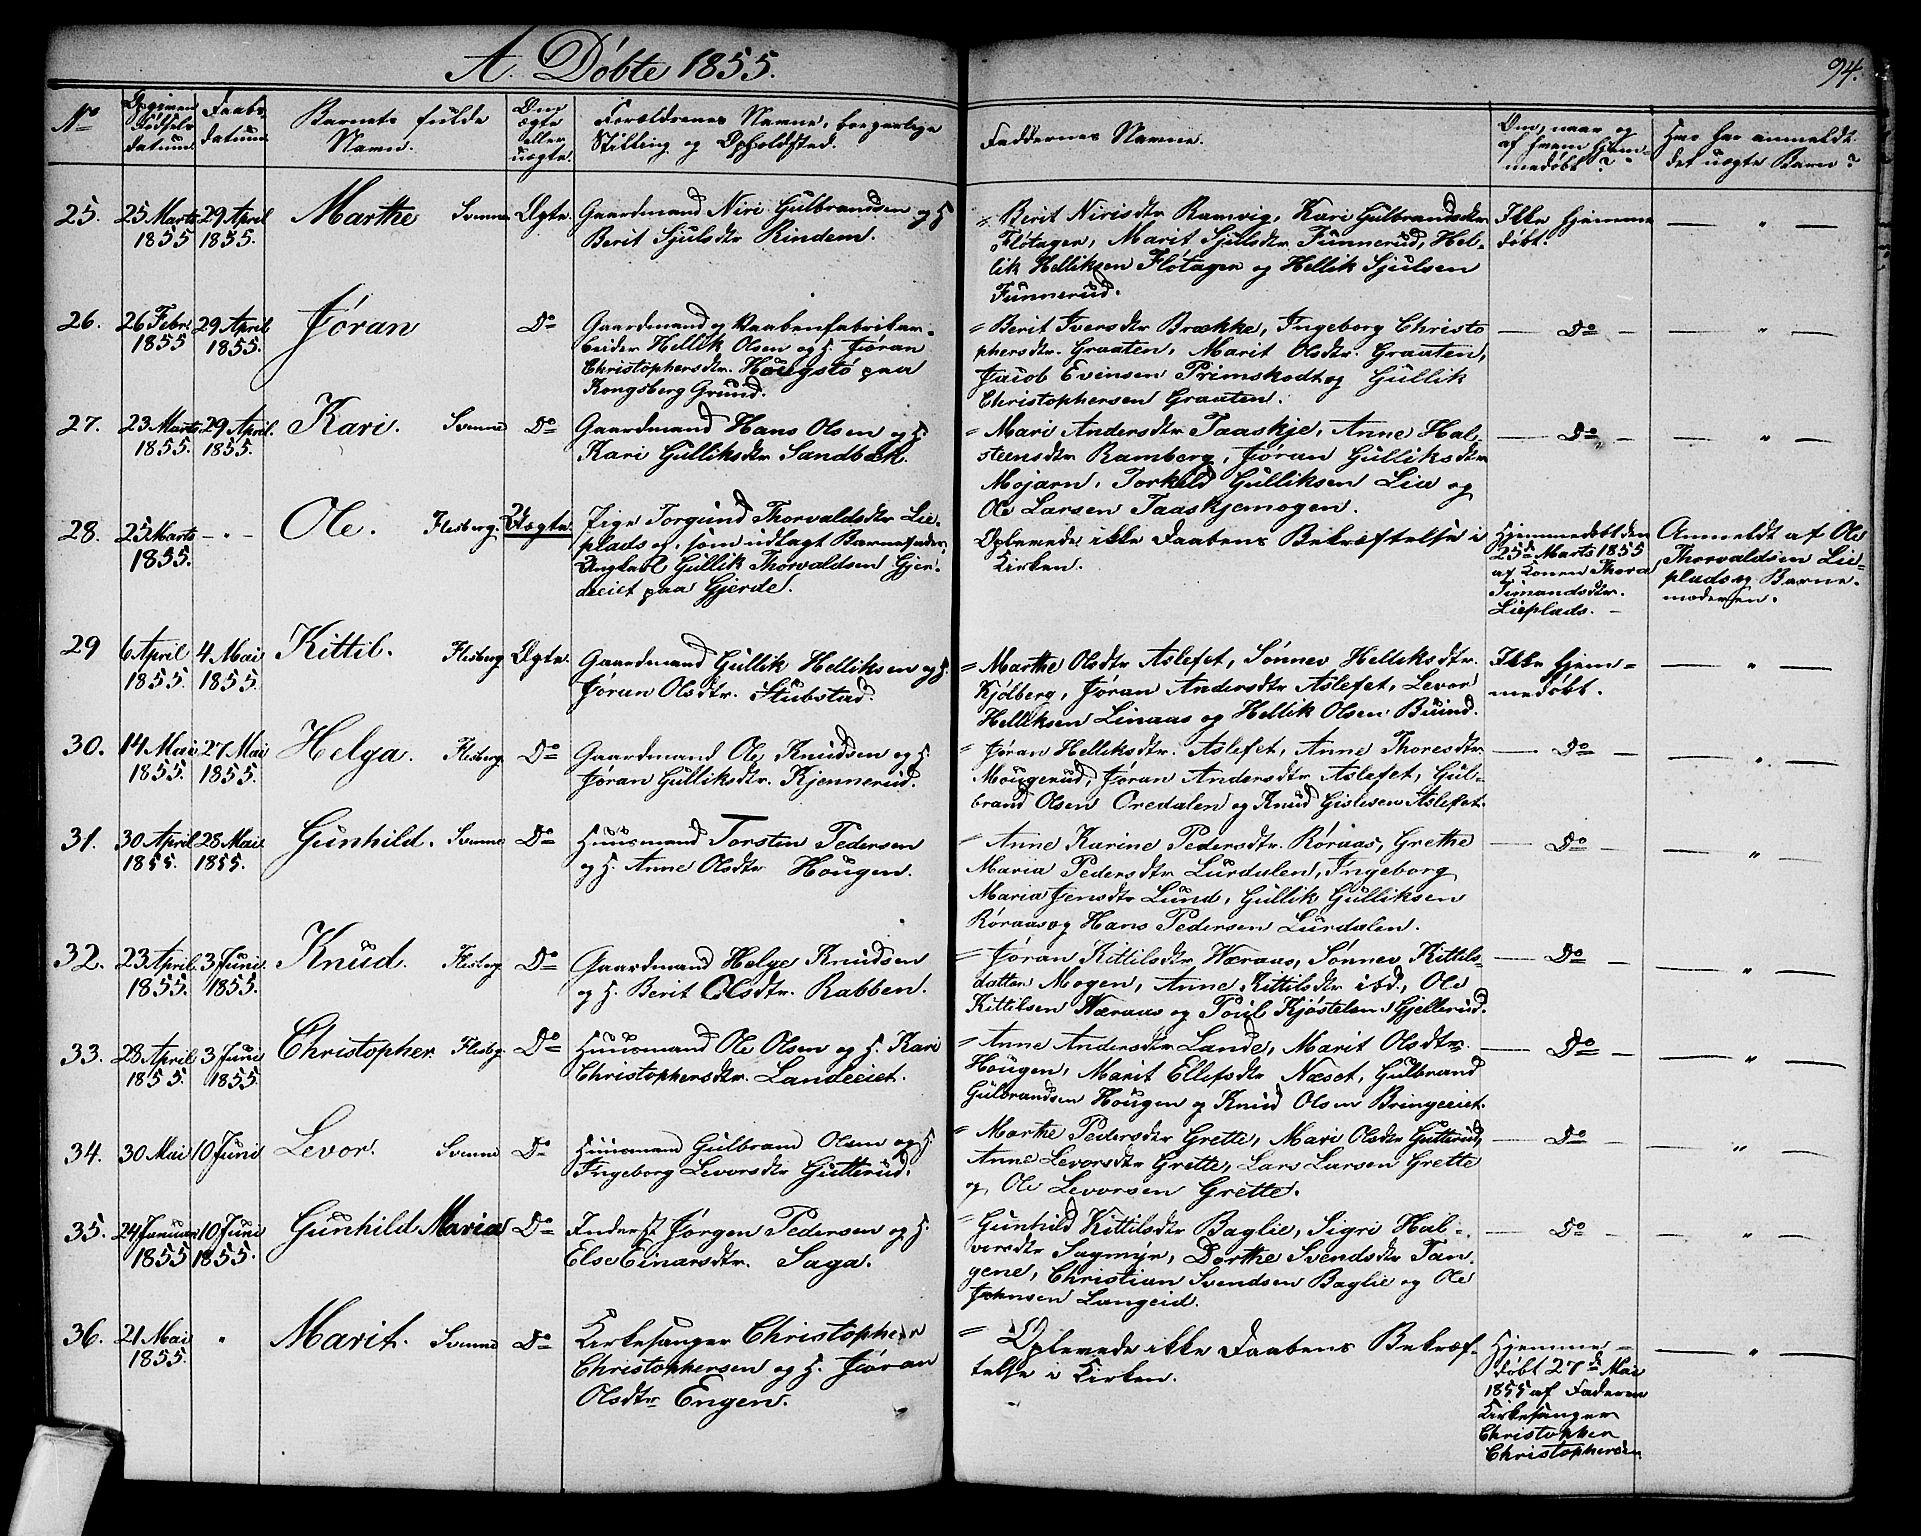 A. Døbte 1855.
94.
No
Opgiven Fødsels datum
Daabs datum
Barnets fulde Navn.
Om ægte eller uægte.
Forældrenes Navne, borgerlige Stilling og Opholdsted.
Faddernes Navne.
Om, naar og af hvem hjemmedøbt?
Hvo har anmeldt det uægte Barn?
25. 25 Marts 1855 29 April 1855. Marthe Svenne Ægte.
Gaardmand Niri Gulbrandsen og H
Berit Sjulsdtr Rindem.
= Berit Nirisdtr Ramvig, Kari Gulbrandsdtr
Fløtager, Marit Sjulsdtr Funnerud, Hel-
lik Helliksen Fløtager og Hellik Sjulsen
Funnerud.
Ikke hjemme
døbt.
— " —
26. 26 Febr. 1855 29 April 1855. Jøran Do
Gaardmand og Vaabenfabrikar-
beider Hellik Olsen og H. Jøran
Christophersdtr. Hougstø paa
Kongsberg Grund.
= Berit Iversdtr Brække, Ingeborg Christo
phersdtr. Graaten, Marit Olsdtr. Graaten,
Jacob Evensen Primskodt og Gullik
Christophersen Graaten.
— Do —
— " —
27. 23 Marts 1855. 29 April 1855. Kari. Svenne Do
Gaardmand Hans Olsen og H.
Kari Gulliksdtr Sandbæk.
= Mari Andersdtr Taaskje, Anne Hal-
steensdtr Ramberg, Jøran Gulliksdtr
Mojarn, Torkild Gulliksen Lia og
Ole Larsen Taaskjemogen.
— Do —
— " —
28. 25 Marts 1855. — " — Ole. Flesberg. Uægte.
Pige Torgund Thorvaldsdtr Lie-
plads og, som udlagt Barnefader,
Ungkarl Gullik Thorvaldsen Gjer-
deeiet paa Gjerde.
Oplevede ikke Daabens Bekræftelse i
Kirken.
Hjemmedøbt den
25de Marts 1855
af Konen Thora
Timandsdtr.
Lieplads. —
Anmeldt af Ole
Thorvaldsen Lie-
plads og Barne-
moderen.
29 6 April 1855. 4 Mai 1855. Kittil. Flesberg Ægte.
Gaardmand Gullik Helliksen og H.
Jøran Olsdtr. Stubstad.
= Marthe Olsdtr Aslefet, Sønnev Helliksdtr.
Kjølberg, Jøran Andersdtr Aslefet, Levor
Helliksen Linaas og Hellik Olsen Buind.
Ikke hjem-
medøbt.
— " —
30. 14 Mai 1855. 27 Mai 1855. Helga. Flesberg Do
Gaardmand Ole Knudsen og H.
Jøran Gulliksdtr. Kjennerud.
= Jøran Helliksdtr. Aslefet, Anne Thoresdtr.
Mougerud, Jøran Andersdtr Aslefet, Gul-
brand Olsen Oredalen og Knud Gislesen Aslefet.
— Do —
— " —
31. 30 April 1855. 28 Mai 1855. Gunhild. Svenne Do
Huusmand Torsten Pedersen
og H. Anne Olsdtr Hougen.
= Anne Karine Pedersdtr. Røraas, Grethe
Maria Pedersdtr Lurdalen, Ingeborg
Maria Jensdtr Lund, Gullik Gulliksen
Røraas og Hans Pedersen Lurdalen.
— Do —
— " —
32. 23 April 1855. 3 Juni 1855. Knud. Flesberg Do
Gaardmand Helge Knudsen
og H. Berit Olsdtr. Rabben.
= Jøran Kittilsdtr Væraas, Sønnev Kittils-
datter Mogen, Anne Kittilsdtr ibd., Ole
Kittilsen Væraas og Poul Kjøstelsen Gjellerud.
— Do —
— " —
33. 28 April 1855. 3 Juni 1855. Christopher Flesbg. Do
Huusmand Ole Olsen og H. Kari
Christophersdtr. Landeeiet.
= Anne Andersdtr Lande, Marit Olsdtr.
Hougen, Marit Ellefsdtr Næset, Gulbrand
Gulbrandsen Hougen og Knud Olsen Bringeeiet.
— Do —
— " —
34. 30 Mai 10 Juni Levor. Svenne Do
Huusmand Gulbrand Olsen og H.
Ingeborg Levorsdtr Gutterud.
= Marthe Pedersdtr Grette, Mari Olsdtr Gutterud,
Anne Levorsdtr Grette, Lars Larsen Grette
og Ole Levorsen Grette.
— Do —
— " —
35. 24 Januar 1855 10 Juni 1855. Gunhild Maria Do
Inderst Jørgen Pedersen og H.
Else Einarsdtr. Saga.
= Gunhild Kittilsdtr Baglie, Sigri Hal-
vorsdtr Sagmyr, Dorthe Svendsdtr Tan-
gene, Christian Svendsen Baglie og Ole
Johnsen Langeid.
— Do —
— " —
36. 21 Mai 1855. " Marit. Svenne Do
Kirkesanger Christopher
Christophersen og H. Jøran
Olsdtr Engen.
= Oplevede ikke Daabens Bekræf-
telse i Kirken.
Hjemme-
døbt 27de Mai
1855 af Faderen
Kirkesanger
Christopher
Christophersen
— " —